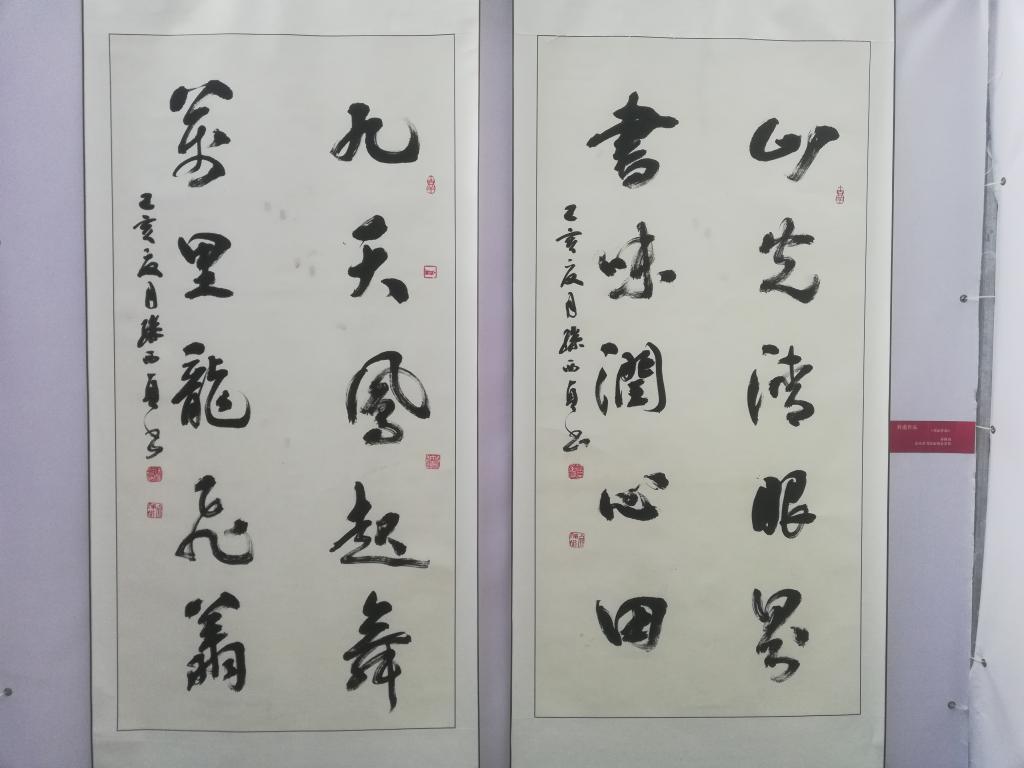 山光清眼界
書味潤心田
己亥夏月滕西貞書
九天鳳起舞
萬里龍飛翥
己亥夏月滕西貞書